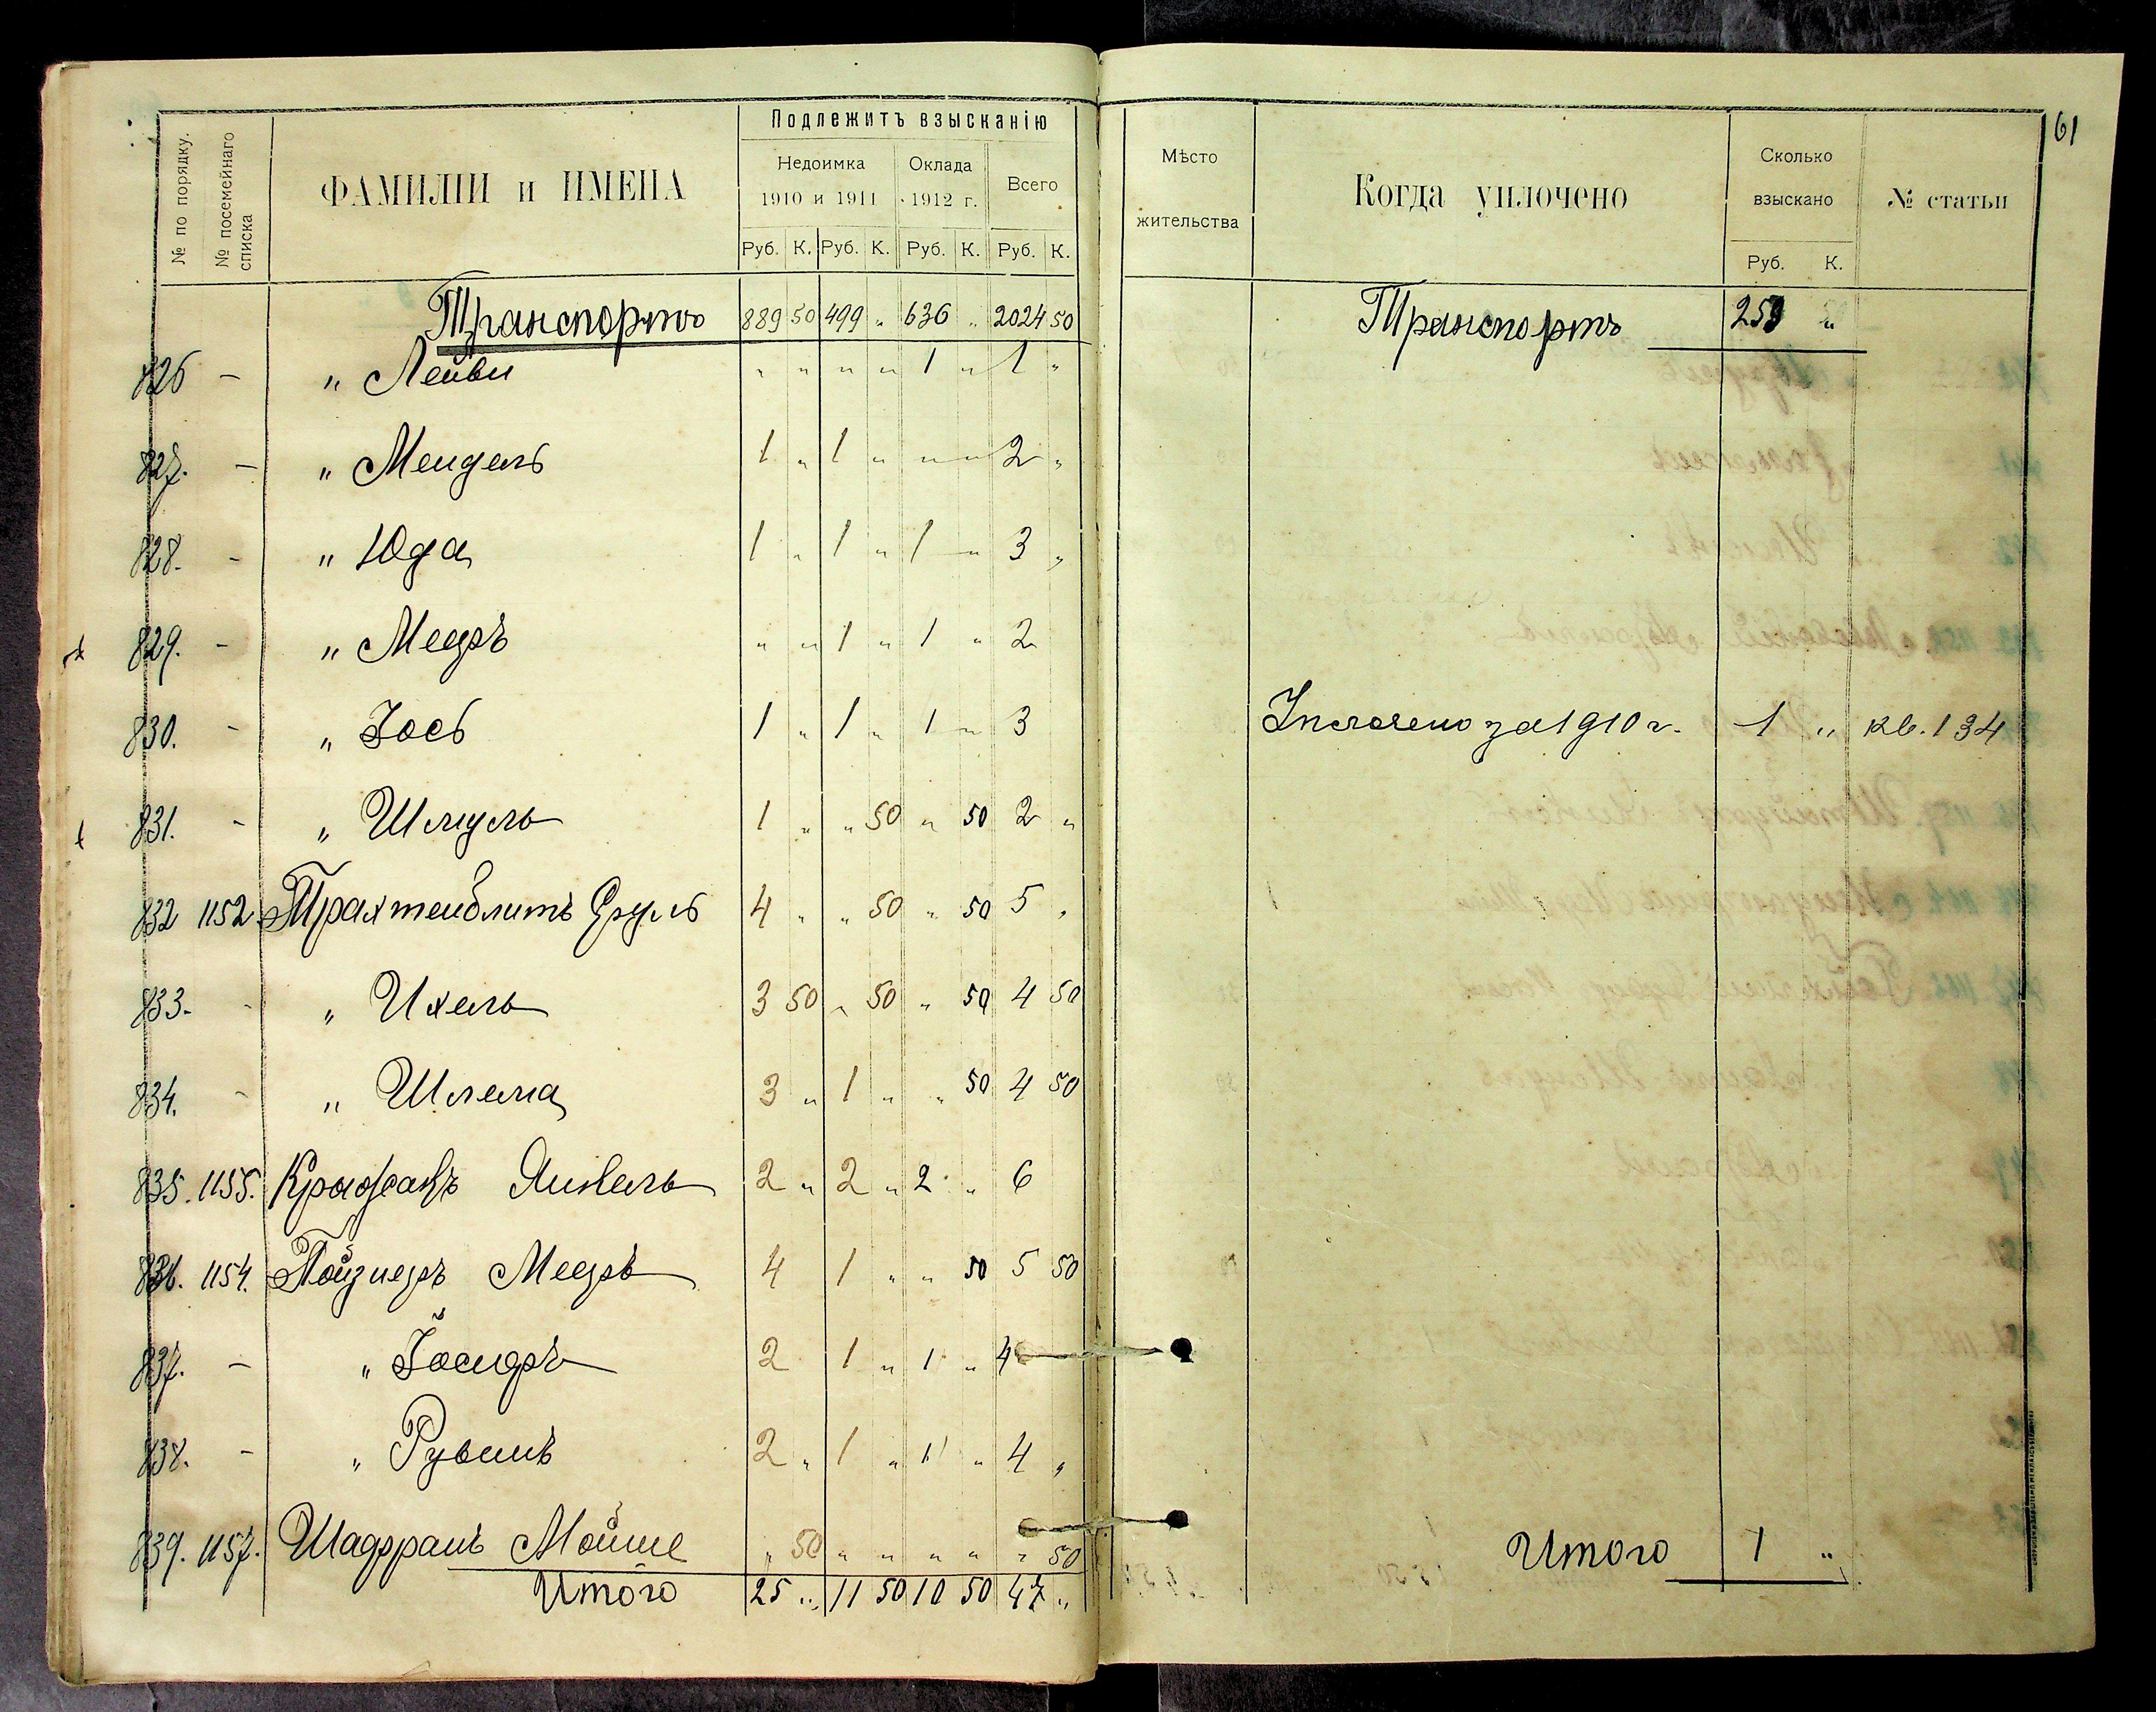 № по порядку.
№ посемейнаго списка
ФАМИЛІИ и ИМЕНА
Подлежитъ взысканію
Недоимка
1910 и 1911
Оклада
1912 г.
Всего
Руб. К. Руб. К. Руб. К. Руб. К.
Транспортъ 889 50 499 „ 636 „ 2024 50
826 – „ Лейви „ „ „ „ 1 „ 1 „
827. – „ Мендель 1 „ 1 „ „ „ 2 „
828. – „ Юда 1 „ 1 „ 1 „ 3 „
829. – „ Мееръ „ „ 1 „ 1 „ 2
830. – „ Іось 1 „ 1 „ 1 „ 3
831. – „ Шмуль 1 „ „ 50 „ 50 2 „
832 1152 Трахтенблитъ Сруль 4 „ „ 50 „ 50 5 „
833. – „ Ихель 3 50 „ 50 „ 50 4 50
834. – „ Шлема 3 „ 1 „ „ 50 4 50
835. 1155. Янкель 2 „ 2 „ 2 „ 6
836. 1154. Пойзнеръ Мееръ 4 1 „ „ 50 5 50
837. – „ 2 1 „ 1 „ 4
838. – „ Рувинъ 2 „ 1 „ 1 „ 4 „
839. 1157. Шадфранъ Мойше „ 50 „ „ „ „ „ 50
Итого 25 „ 11 50 10 50 47 „
61
Мѣсто
жительства
Когда уплочено
Сколько
взыскано
Руб. К.
№ статьи
Транспортъ 259 „
Уплочено за 1910 г. 1 „ кв. 134
Итого 1 „